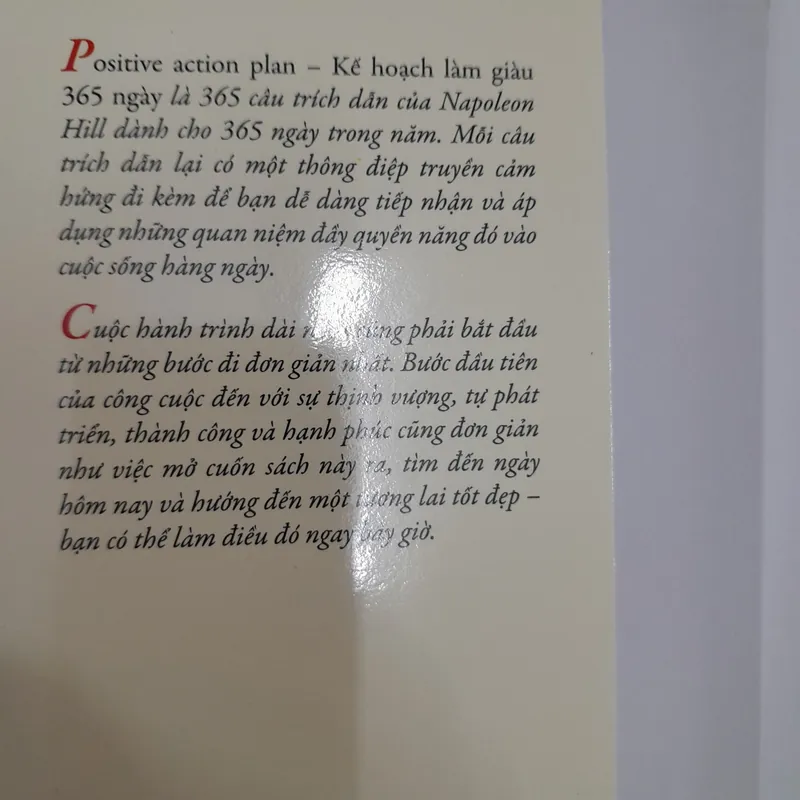 Positive action plan – Kế hoạch làm giàu
365 ngày là 365 câu trích dẫn của Napoleon
Hill dành cho 365 ngày trong năm. Mỗi câu
trích dẫn lại có một thông điệp truyền cảm
hứng đi kèm để bạn dễ dàng tiếp nhận và áp
dụng những quan niệm đầy quyền năng đó vào
cuộc sống hàng ngày.
Cuộc hành trình dài cũng phải bắt đầu
từ những bước đi đơn giản nhất. Bước đầu tiên
của công cuộc đến với sự thịnh vượng, tự phát
triển, thành công và hạnh phúc cũng đơn giản
như việc mở cuốn sách này ra, tìm đến ngày
hôm nay và hướng đến một tương lai tốt đẹp –
bạn có thể làm điều đó ngay bây giờ.